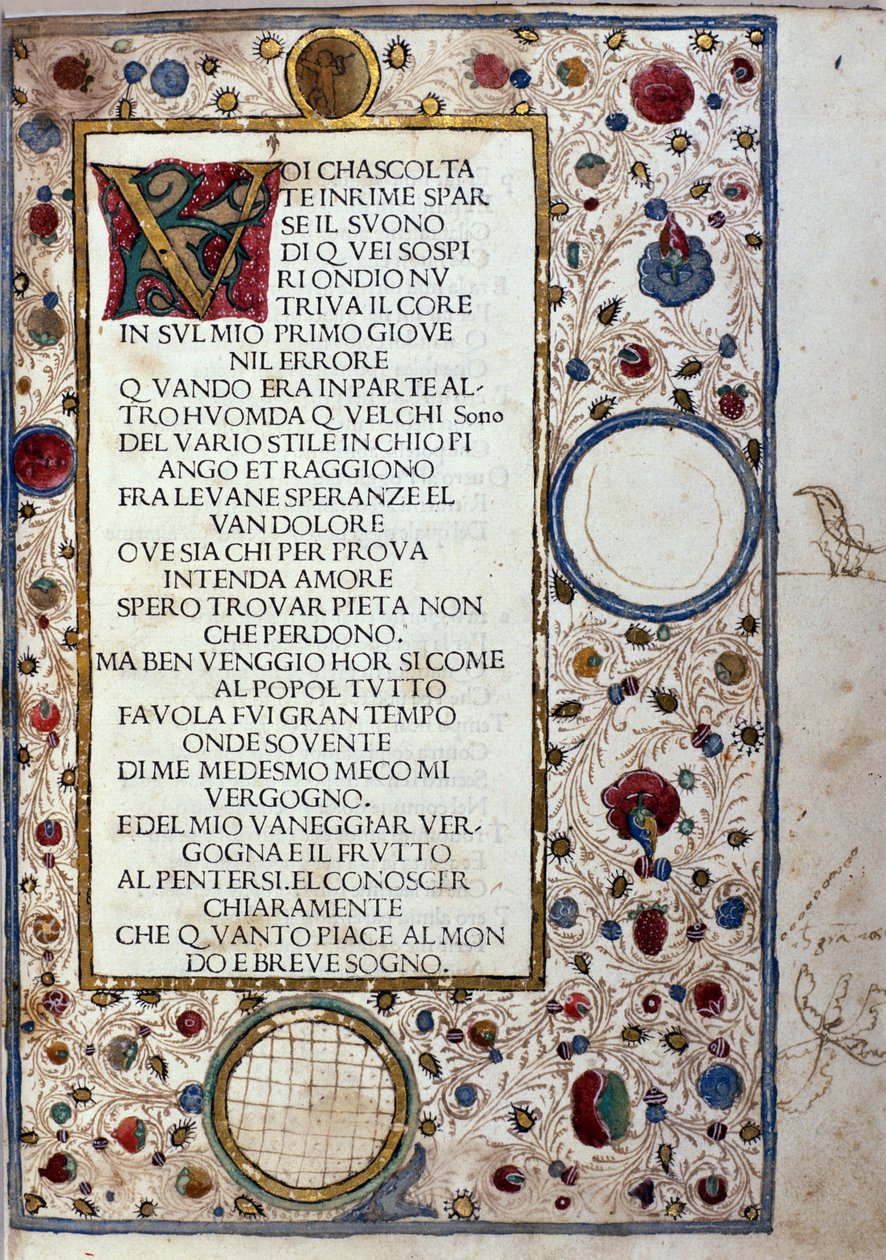 VOI CHASCOLTA
TE IN RIME SPAR
SE IL SVONO
DI QVEI SOSPI
RI ONDIO NV
TRIVA IL CORE
IN SVL MIO PRIMO GIOVE
NIL ERRORE
QVANDO ERA IN PARTE AL-
TRO HVOM DA QVEL CHI Sono
DEL VARIO STILE IN CHIO PI
ANGO ET RAGGIONO
FRA LE VANE SPERANZE EL
VAN DOLORE
OVE SIA CHI PER PROVA
INTENDA AMORE
SPERO TROVAR PIETA NON
CHE PERDONO.
MA BEN VENGGIO HOR SI COME
AL POPOL TVTTO
FAVOLA FVI GRAN TEMPO
ONDE SOVENTE
DI ME MEDESMO MECO MI
VERGOGNO.
E DEL MIO VANEGGIAR VER-
GOGNA E IL FRVTTO
AL PENTERSI. EL CONOSCER
CHIARAMENTE
CHE QVANTO PIACE AL MON
DO E BREVE SOGNO.